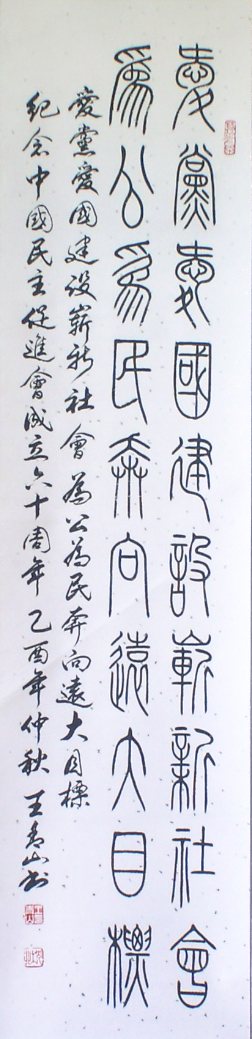 愛黨愛國建設嶄新社會
為公為民奔向遠大目標
愛黨愛國建设嶄新社會為公為民奔向遠大目標
紀念中國民主促進會成立六十周年乙酉年仲秋王青山书